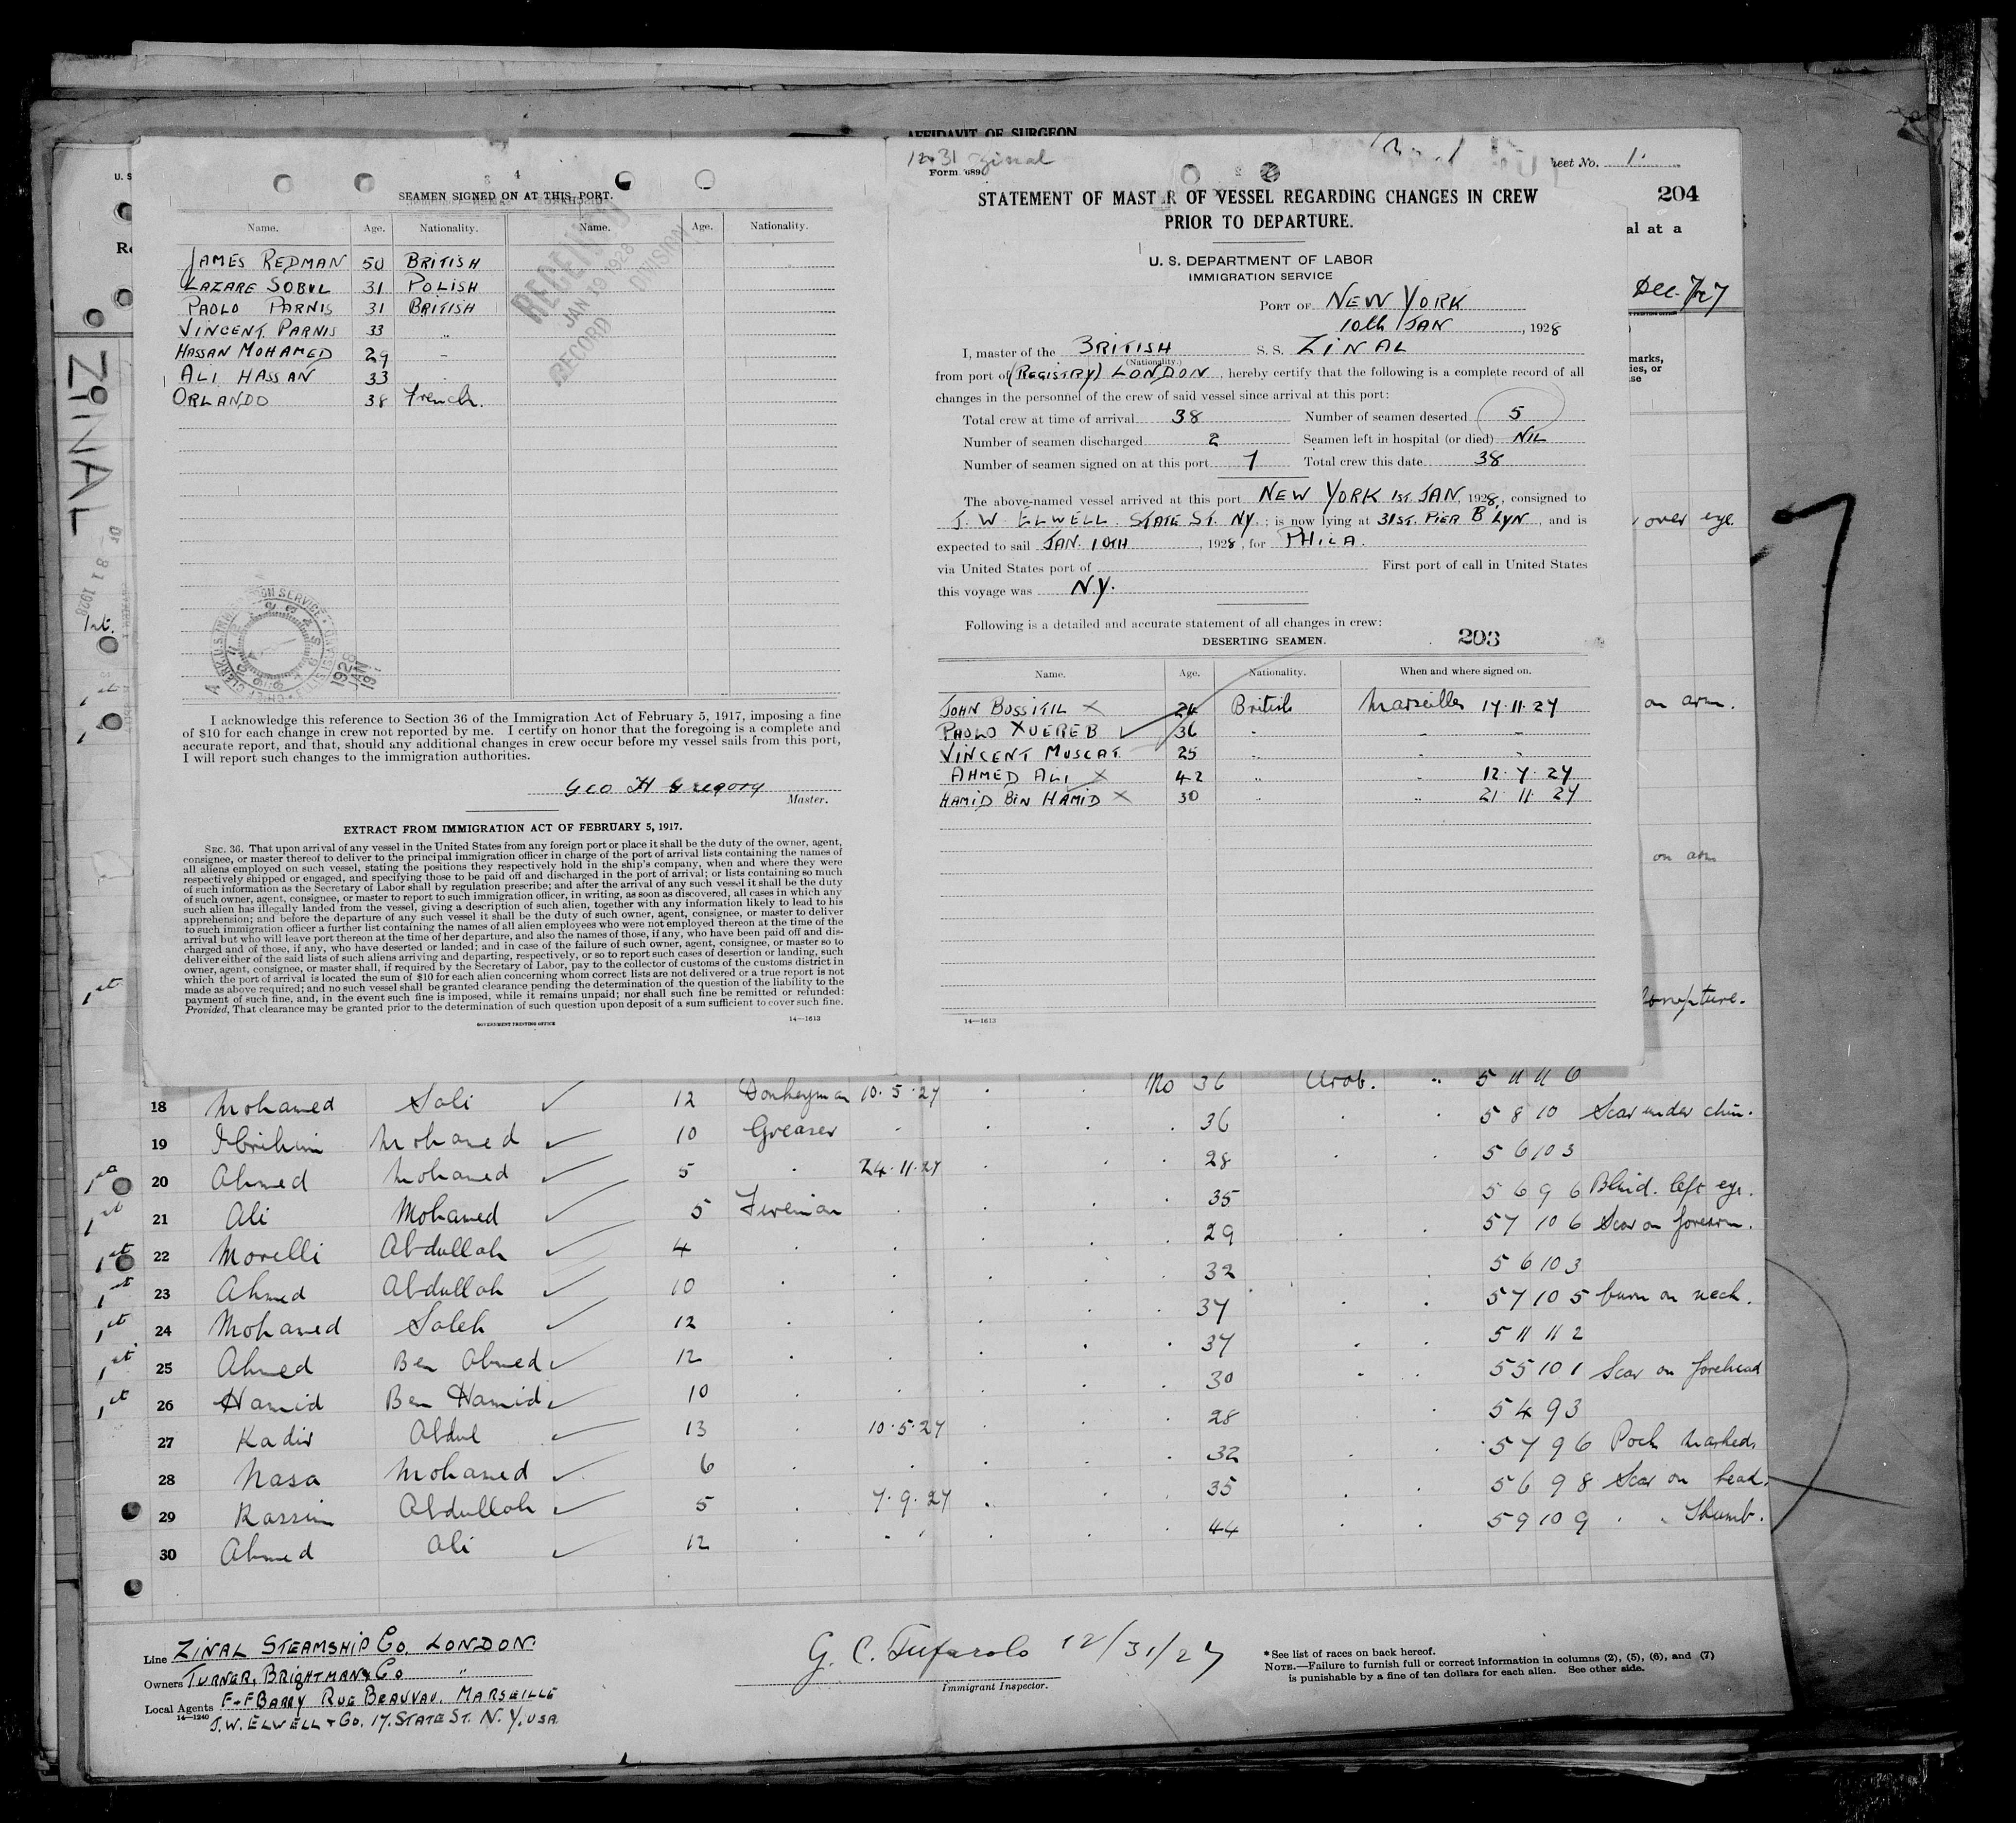 AFFIDAVIT OF SURGEON
SEAMEN SIGNED ON AT THIS PORT.
Name. Age. Nationality. Name. Age. Nationality.
JAMES REDMAN 50 BRITISH
LAZARE SOBUL 31 POLISH
PAOLO PARNIS 31 BRITISH
VINCENT PARNIS 33 "
HASSAN MOHAMED 29 -
ALI HASSAN 33
ORLANDO 38 French.
RECEIVED
JAN 19 1928
RECORD DIVISION
1928
JAN
I acknowledge this reference to Section 36 of the Immigration Act of February 5, 1917, imposing a fine
of $10 for each change in crew not reported by me. I certify on honor that the foregoing is a complete and
accurate report, and that, should any additional changes in crew occur before my vessel sails from this port,
I will report such changes to the immigration authorities.
Geo H Gregory
Master.
EXTRACT FROM IMMIGRATION ACT OF FEBRUARY 5, 1917.
SEC. 36. That upon arrival of any vessel in the United States from any foreign port or place it shall be the duty of the owner, agent,
consignee, or master thereof to deliver to the principal immigration officer in charge of the port of arrival lists containing the names of
all aliens employed on such vessel, stating the positions they respectively hold in the ship's company, when and where they were
respectively shipped or engaged, and specifying those to be paid off and discharged in the port of arrival; or lists containing so much
of such information as the Secretary of Labor shall by regulation prescribe; and after the arrival of any such vessel it shall be the duty
of such owner, agent, consignee, or master to report to such immigration officer, in writing, as soon as discovered, all cases in which any
such alien has illegally landed from the vessel, giving a description of such alien, together with any information likely to lead to his
apprehension; and before the departure of any such vessel it shall be the duty of such owner, agent, consignee, or master to deliver
to such immigration officer a further list containing the names of all alien employees who were not employed thereon at the time of the
arrival but who will leave port thereon at the time of her departure, and also the names of those, if any, who have been paid off and dis-
charged and of those, if any, who have deserted or landed; and in case of the failure of such owner, agent, consignee, or master so to
deliver either of the said lists of such aliens arriving and departing, respectively, or so to report such cases of desertion or landing, such
owner, agent, consignee, or master shall, if required by the Secretary of Labor, pay to the collector of customs of the customs district in
which the port of arrival is located the sum of $10 for each alien concerning whom correct lists are not delivered or a true report is not
made as above required; and no such vessel shall be granted clearance pending the determination of the question of the liability to the
payment of such fine, and, in the event such fine is imposed, while it remains unpaid; nor shall such fine be remitted or refunded:
Provided, That clearance may be granted prior to the determination of such question upon deposit of a sum sufficient to cover such fine.
GOVERNMENT PRINTING OFFICE 14—1613
12-31
Form 689
Sheet No. 1.
STATEMENT OF MASTER OF VESSEL REGARDING CHANGES IN CREW
PRIOR TO DEPARTURE.
U. S. DEPARTMENT OF LABOR
IMMIGRATION SERVICE
PORT OF NEW YORK
10th JAN, 1928
I, master of the BRITISH S. S. ZINAL
(Nationality.)
from port of (REGISTRY) LONDON, hereby certify that the following is a complete record of all
changes in the personnel of the crew of said vessel since arrival at this port:
Total crew at time of arrival 38 Number of seamen deserted 5
Number of seamen discharged 2 Seamen left in hospital (or died) NIL
Number of seamen signed on at this port 7 Total crew this date 38
The above-named vessel arrived at this port NEW YORK 1ST JAN, 1928, consigned to
J. W ELWELL. STATE ST. NY.; is now lying at 31ST. PIER B'LYN, and is
expected to sail JAN. 10TH, 1928, for PHILA.
via United States port of First port of call in United States
this voyage was N.Y.
Following is a detailed and accurate statement of all changes in crew:
DESERTING SEAMEN. 203
Name. Age. Nationality. When and where signed on.
JOHN BUSSITIL X 24 British Marseilles 17.11.27
PAOLO XUEREB 36 " " "
VINCENT MUSCAT 25 " " "
AHMED ALI X 42 " " 12.7.27
HAMID BIN HAMID X 30 " " 21 11 27
14—1613
204
al at a
Dec. 7/27
marks,
ies, or
se
over eye.
on arm.
on arm
ZINAL
Mo 36 Arab. " 5 11 11 6
18 Mohamed Sali ✓ 12 Donkeyman 10.5.27 36 5 8 10 Scar under chin.
19 Ibrihim Mohamed ✓ 10 Greaser 28 5 6 10 3
20 Ahmed Mohamed ✓ 5 24.11.27 35 5 6 9 6 Blind. left eye.
21 Ali Mohamed ✓ 5 Fireman 29 5 7 10 6 Scar on forearm.
22 Morelli Abdullah ✓ 4 32 5 6 10 3
23 Ahmed Abdullah ✓ 10 37 5 7 10 5 burn on neck.
24 Mohamed Saleh ✓ 12 37 5 11 11 2
25 Ahmed Ben Ahmed ✓ 12 30 5 5 10 1 Scar on forehead
26 Hamid Ben Hamid ✓ 10 28 5 4 9 3
27 Kadir Abdul ✓ 13 10.5.27 32 5 7 9 6 Pock marked
28 Nasa Mohamed ✓ 6 35 5 6 9 8 Scar on head.
29 Kassim Abdullah ✓ 5 7.9.27 44 5 9 10 9 " " Thumb.
30 Ahmed Ali ✓ 12
Line ZINAL STEAMSHIP CO. LONDON.
Owners TURNER, BRIGHTMAN & CO "
Local Agents F & F BARRY RUE BEAUVAU. MARSEILLE
14—1240 J. W. ELWELL & CO. 17. STATE ST. N. Y. USA
G. C. Tufarolo 12/31/27
Immigrant Inspector.
* See list of races on back hereof.
NOTE.—Failure to furnish full or correct information in columns (2), (5), (6), and (7)
is punishable by a fine of ten dollars for each alien. See other side.